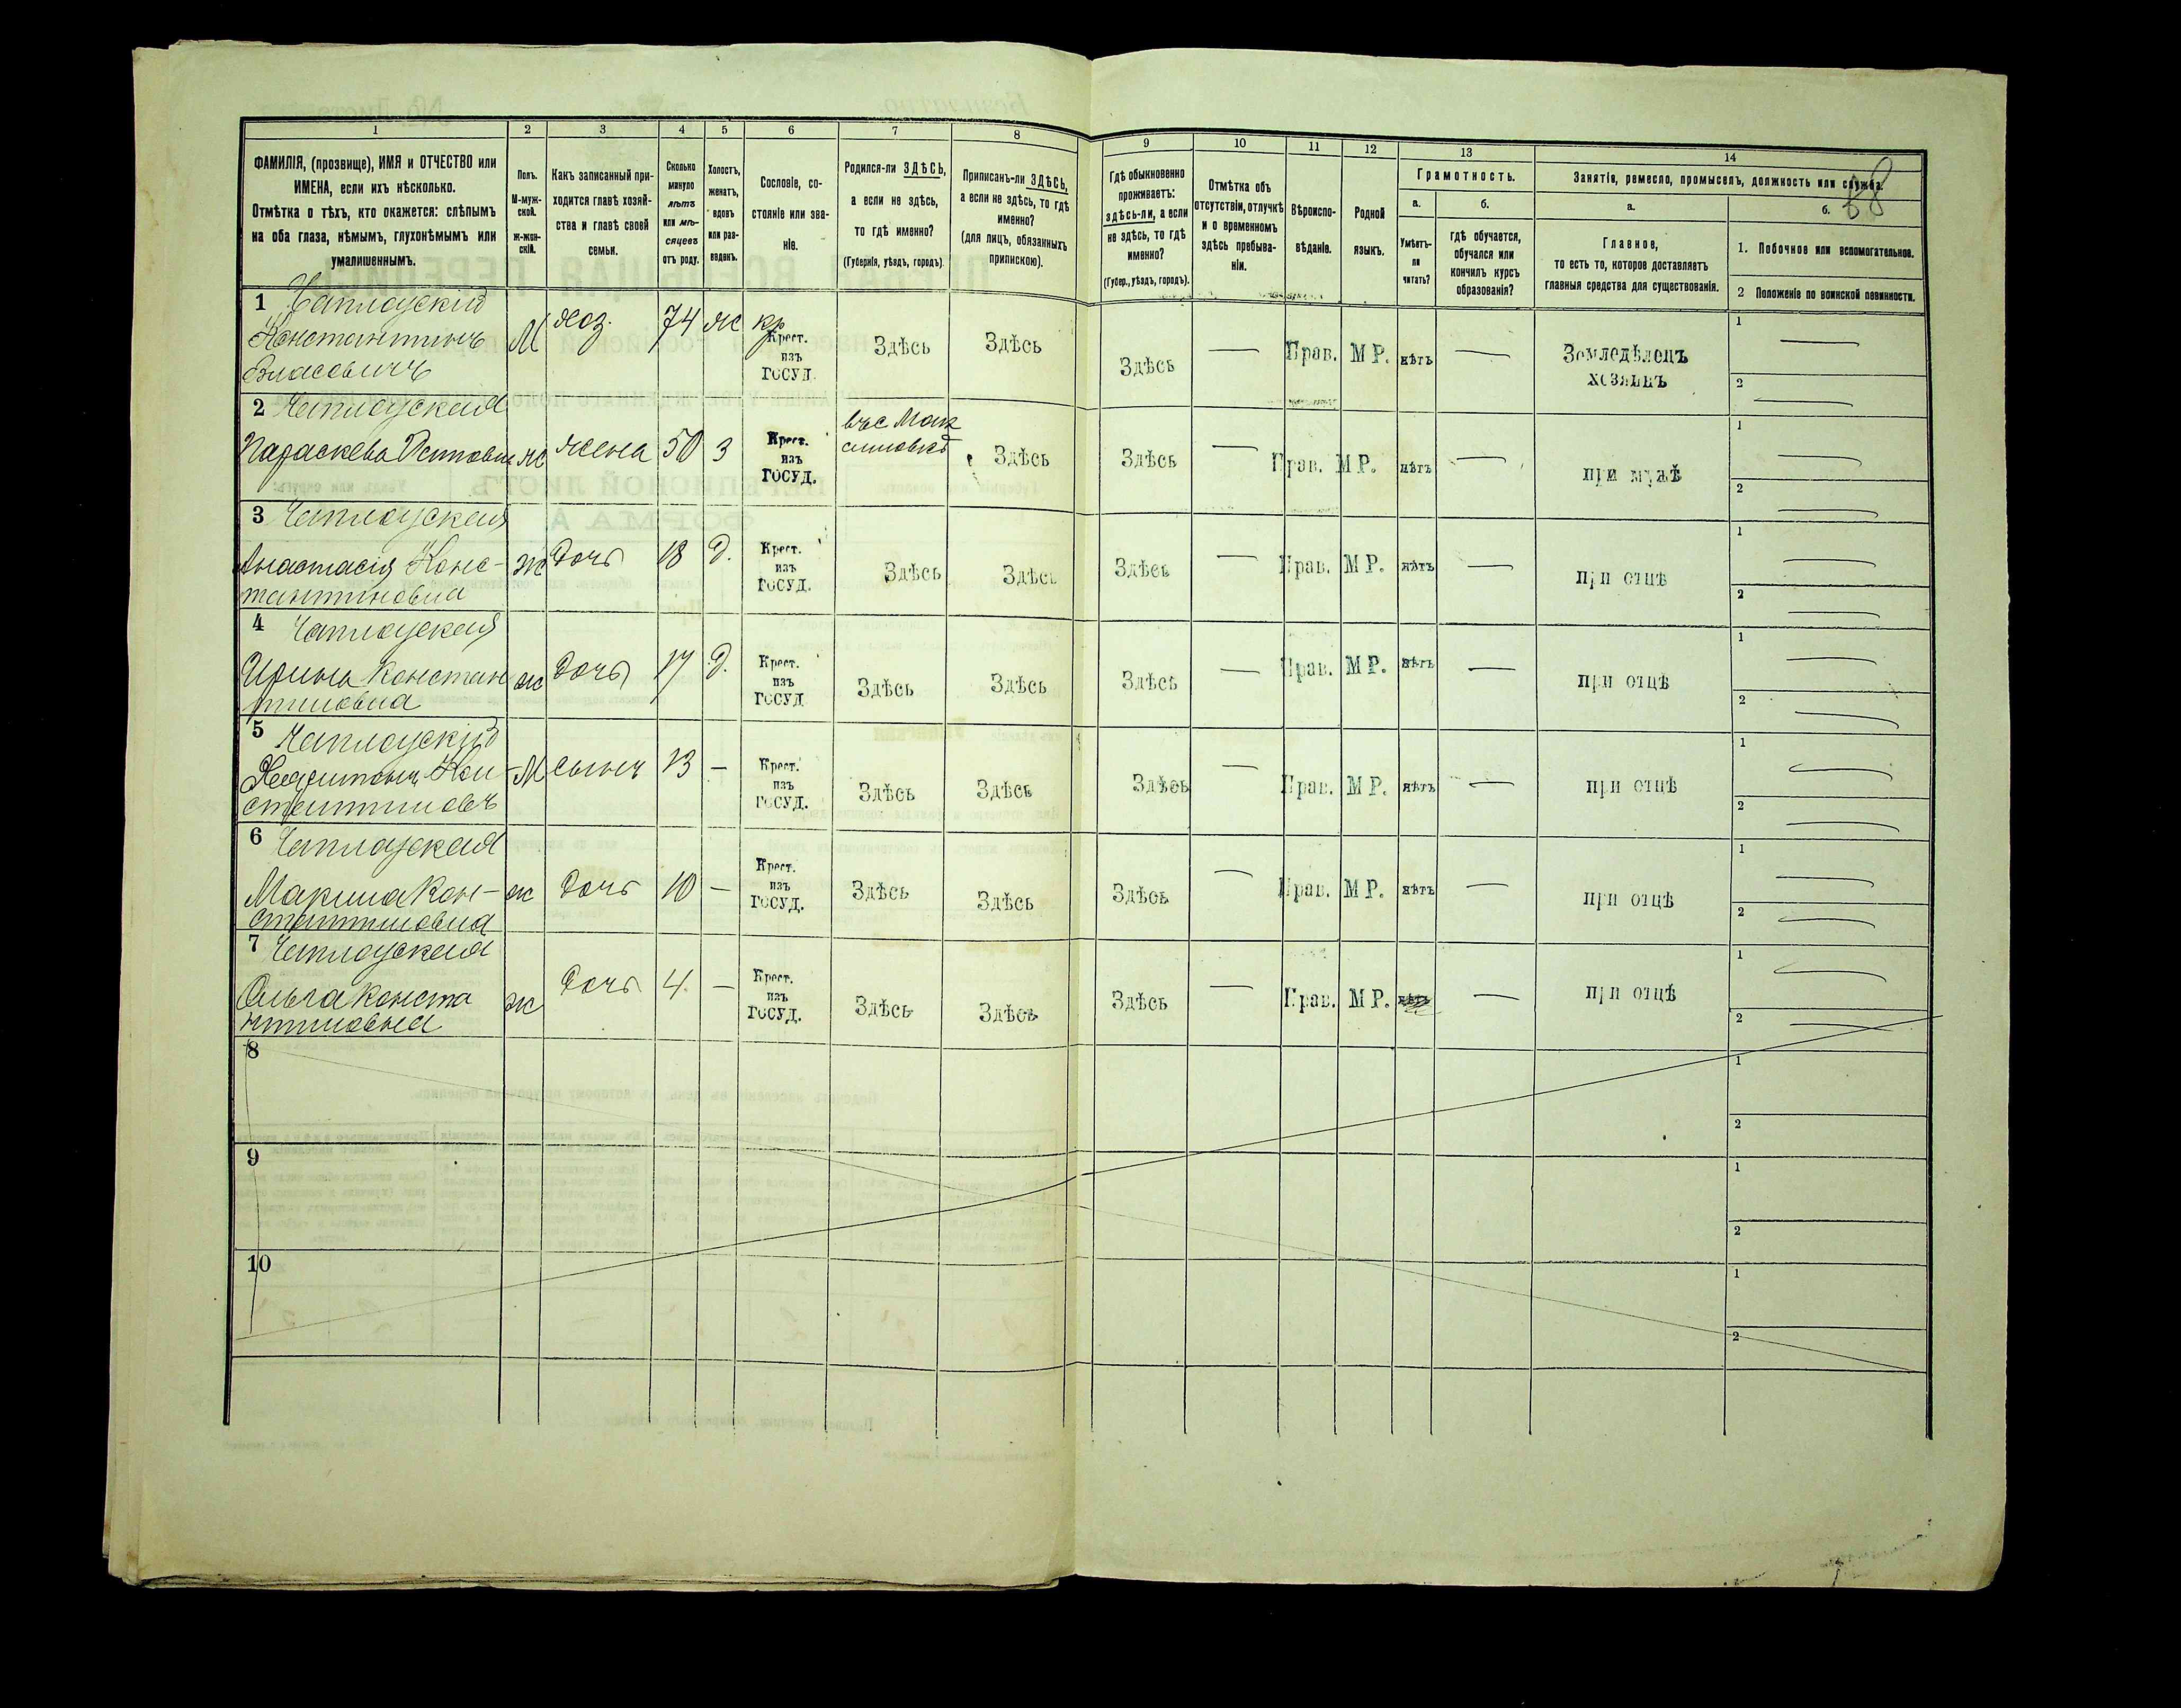 88
1 2 3 4 5 6 7 8 9 10 11 12 13 14
ФАМИЛІЯ, (прозвище), ИМЯ и ОТЧЕСТВО или
ИМЕНА, если ихъ нѣсколько.
Отмѣтка о тѣхъ, кто окажется: слѣпымъ
на оба глаза, нѣмымъ, глухонѣмымъ или
умалишеннымъ.
Полъ.
М-муж-
ской.
ж-жен-
скій.
Какъ записанный при-
ходится главѣ хозяй-
ства и главѣ своей
семьи.
Сколько
минуло
лѣтъ
или мѣ-
сяцевъ
отъ роду.
Холостъ,
женатъ,
вдовъ
или раз-
веденъ.
Сословіе, со-
стояніе или зва-
ніе.
Родился-ли ЗДѢСЬ,
а если не здѣсь,
то гдѣ именно?
(Губернія, уѣздъ, городъ).
Приписанъ-ли ЗДѢСЬ,
а если не здѣсь, то гдѣ
именно?
(для лицъ, обязанныхъ
припискою).
Гдѣ обыкновенно
проживаетъ:
здѣсь-ли, а если
не здѣсь, то гдѣ
именно?
(Губер., уѣздъ, городъ).
Отмѣтка объ
отсутствіи, отлучкѣ
и о временномъ
здѣсь пребыва-
ніи.
Вѣроиспо-
вѣданіе.
Родной
языкъ.
Грамотность.
а.
Умѣетъ-
ли
читать?
б.
гдѣ обучается,
обучался или
кончилъ курсъ
образованія?
Занятія, ремесло, промыселъ, должность или служба.
а.
Главное,
то есть то, которое доставляетъ
главныя средства для существованія.
б.
1. Побочное или вспомогательное.
2 Положеніе по воинской повинности.
1 Чаплоускій
Константинъ
Власовичъ
М хоз. 74 ж кр
Крест.
изъ
ГОСУД.
Здѣсь Здѣсь Здѣсь — Прав. МР. нѣтъ —
Земледѣлецъ
хозяинъ
1 —
2 —
2 Чаплоуская
Параскева
ж жена 50 з
Крест.
изъ
ГОСУД.
въ с Мак
симовкѣ
Здѣсь Здѣсь — Прав. МР. нѣтъ — при мужѣ
1 —
2 —
3 Чаплоуская
Анастасія Конс-
тантиновна
ж дочь 18 д.
Крест.
изъ
ГОСУД.
Здѣсь Здѣсь Здѣсь — Прав. МР. нѣтъ — при отцѣ
1 —
2 —
4 Чаплоуская
Ирина Констан
тиновна
ж дочь 17 д.
Крест.
изъ
ГОСУД.
Здѣсь Здѣсь Здѣсь — Прав. МР. нѣтъ — при отцѣ
1 —
2 —
5 Чаплоускій
Харитонъ Кон-
стантиновъ
М сынъ 13 —
Крест.
изъ
ГОСУД.
Здѣсь Здѣсь Здѣсь — Прав. МР. нѣтъ — при отцѣ
1 —
2 —
6 Чаплоуская
Марина Кон-
стантиновна
ж дочь 10 —
Крест.
изъ
ГОСУД.
Здѣсь Здѣсь Здѣсь — Прав. МР. нѣтъ — при отцѣ
1 —
2 —
7 Чаплоуская
Ольга Конста
нтиновна
ж дочь 4. —
Крест.
изъ
ГОСУД.
Здѣсь Здѣсь Здѣсь — Прав. МР. нѣтъ — при отцѣ
1 —
2 —
8
1
2
9
1
2
10
1
2